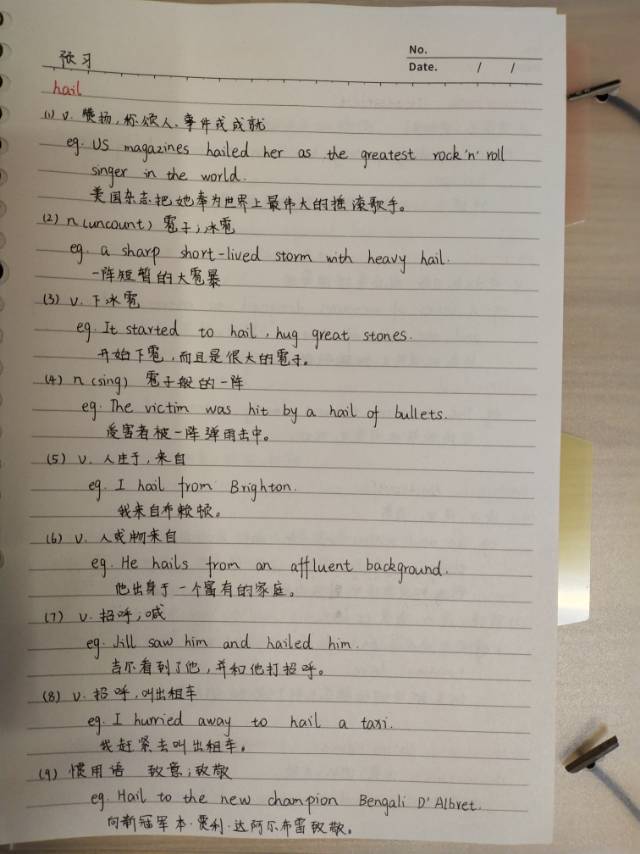 No.
预习
Date. / /
hail
(1) v. 赞扬,称颂人、事件或成就
eg. US magazines hailed her as the greatest rock'n'roll
singer in the world.
美国杂志把她奉为世界上最伟大的摇滚歌手。
(2) n(uncount) 雹子;冰雹
eg. a sharp short-lived storm with heavy hail.
一阵短暂的大雹暴
(3) v. 下冰雹
eg. It started to hail, hug great stones.
开始下雹,而且是很大的雹子。
(4) n(sing) 雹子般的一阵
eg. The victim was hit by a hail of bullets.
受害者被一阵弹雨击中。
(5) v. 人生于,来自
eg. I hail from Brighton.
我来自布赖顿。
(6) v. 人或物来自
eg. He hails from an affluent background.
他出身于一个富有的家庭。
(7) v. 招呼,喊
eg. Jill saw him and hailed him.
吉尔看到了他,并和他打招呼。
(8) v. 招呼,叫出租车
eg. I hurried away to hail a taxi.
我赶紧去叫出租车。
(9) 惯用语 致意;致敬
eg. Hail to the new champion Bengali D'Albret.
向新冠军本·贾利·达阿尔布雷致敬。